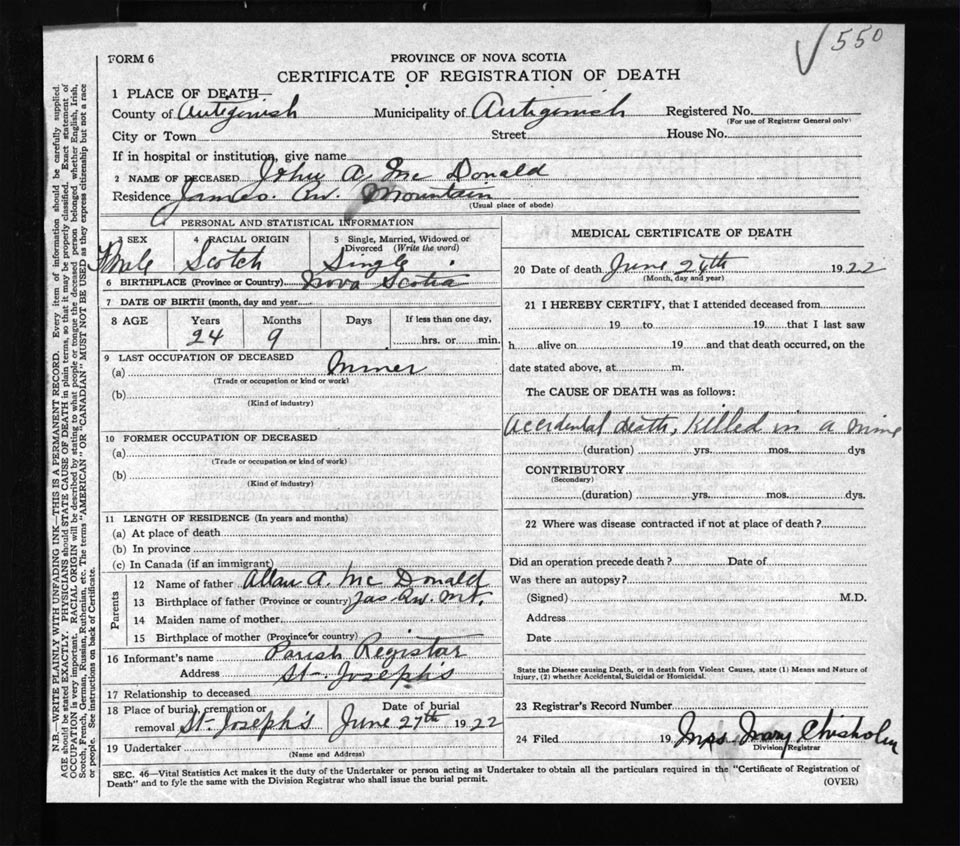 550
FORM 6
PROVINCE OF NOVA SCOTIA
CERTIFICATE OF REGISTRATION OF DEATH
1 PLACE OF DEATH—
County of Antigonish Municipality of Antigonish Registered No.
(For use of Registrar General only)
City or Town Street House No.
If in hospital or institution, give name
2 NAME OF DECEASED John A. Mc Donald
Residence James. Rv. Mountain
(Usual place of abode)
PERSONAL AND STATISTICAL INFORMATION
3 SEX Male
4 RACIAL ORIGIN Scotch
5 Single, Married, Widowed or Divorced (Write the word) Single
6 BIRTHPLACE (Province or Country) Nova Scotia
7 DATE OF BIRTH (month, day and year)
8 AGE Years Months Days If less than one day,
24 9 hrs. or min.
9 LAST OCCUPATION OF DECEASED
(a) Miner
(Trade or occupation or kind or work)
(b)
(Kind of industry)
10 FORMER OCCUPATION OF DECEASED
(a)
(Trade or occupation or kind of work)
(b)
(Kind of industry)
11 LENGTH OF RESIDENCE (In years and months)
(a) At place of death
(b) In province
(c) In Canada (if an immigrant)
Parents
12 Name of father Allan A. Mc Donald
13 Birthplace of father (Province or country) Jas Rv. Mt.
14 Maiden name of mother
15 Birthplace of mother (Province or country)
16 Informant's name Parish Registar
Address St. Joseph's
17 Relationship to deceased
18 Place of burial, cremation or removal St. Joseph's
Date of burial June 27th 1922
19 Undertaker
(Name and Address)
MEDICAL CERTIFICATE OF DEATH
20 Date of death June 24th 1922
(Month, day and year)
21 I HEREBY CERTIFY, that I attended deceased from
19 to 19 that I last saw
h alive on 19 and that death occurred, on the
date stated above, at m.
The CAUSE OF DEATH was as follows:
Accidental death, killed in a mine
(duration) yrs. mos. dys
CONTRIBUTORY
(Secondary)
(duration) yrs. mos. dys.
22 Where was disease contracted if not at place of death?
Did an operation precede death? Date of
Was there an autopsy?
(Signed) M.D.
Address
Date
State the Disease causing Death, or in death from Violent Causes, state (1) Means and Nature of
Injury, (2) whether Accidental, Suicidal or Homicidal.
23 Registrar's Record Number
24 Filed 19 Mrs Mary Chisholm
Division Registrar
SEC. 46—Vital Statistics Act makes it the duty of the Undertaker or person acting as Undertaker to obtain all the particulars required in the "Certificate of Registration of
Death" and to fyle the same with the Division Registrar who shall issue the burial permit.
(OVER)
N.B.—WRITE PLAINLY WITH UNFADING INK—THIS IS A PERMANENT RECORD. Every item of information should be carefully supplied.
AGE should be stated EXACTLY. PHYSICIANS should STATE CAUSE OF DEATH in plain terms, so that it may be properly classified. Exact statement of
OCCUPATION is very important. RACIAL ORIGIN will be described by stating to what people or tongue the deceased person belonged whether English, Irish,
Scotch, French, German, Russian, Ruthenian, etc. The terms "AMERICAN" OR "CANADIAN" MUST NOT BE USED as they express citizenship but not a race
or people. See instructions on back of Certificate.